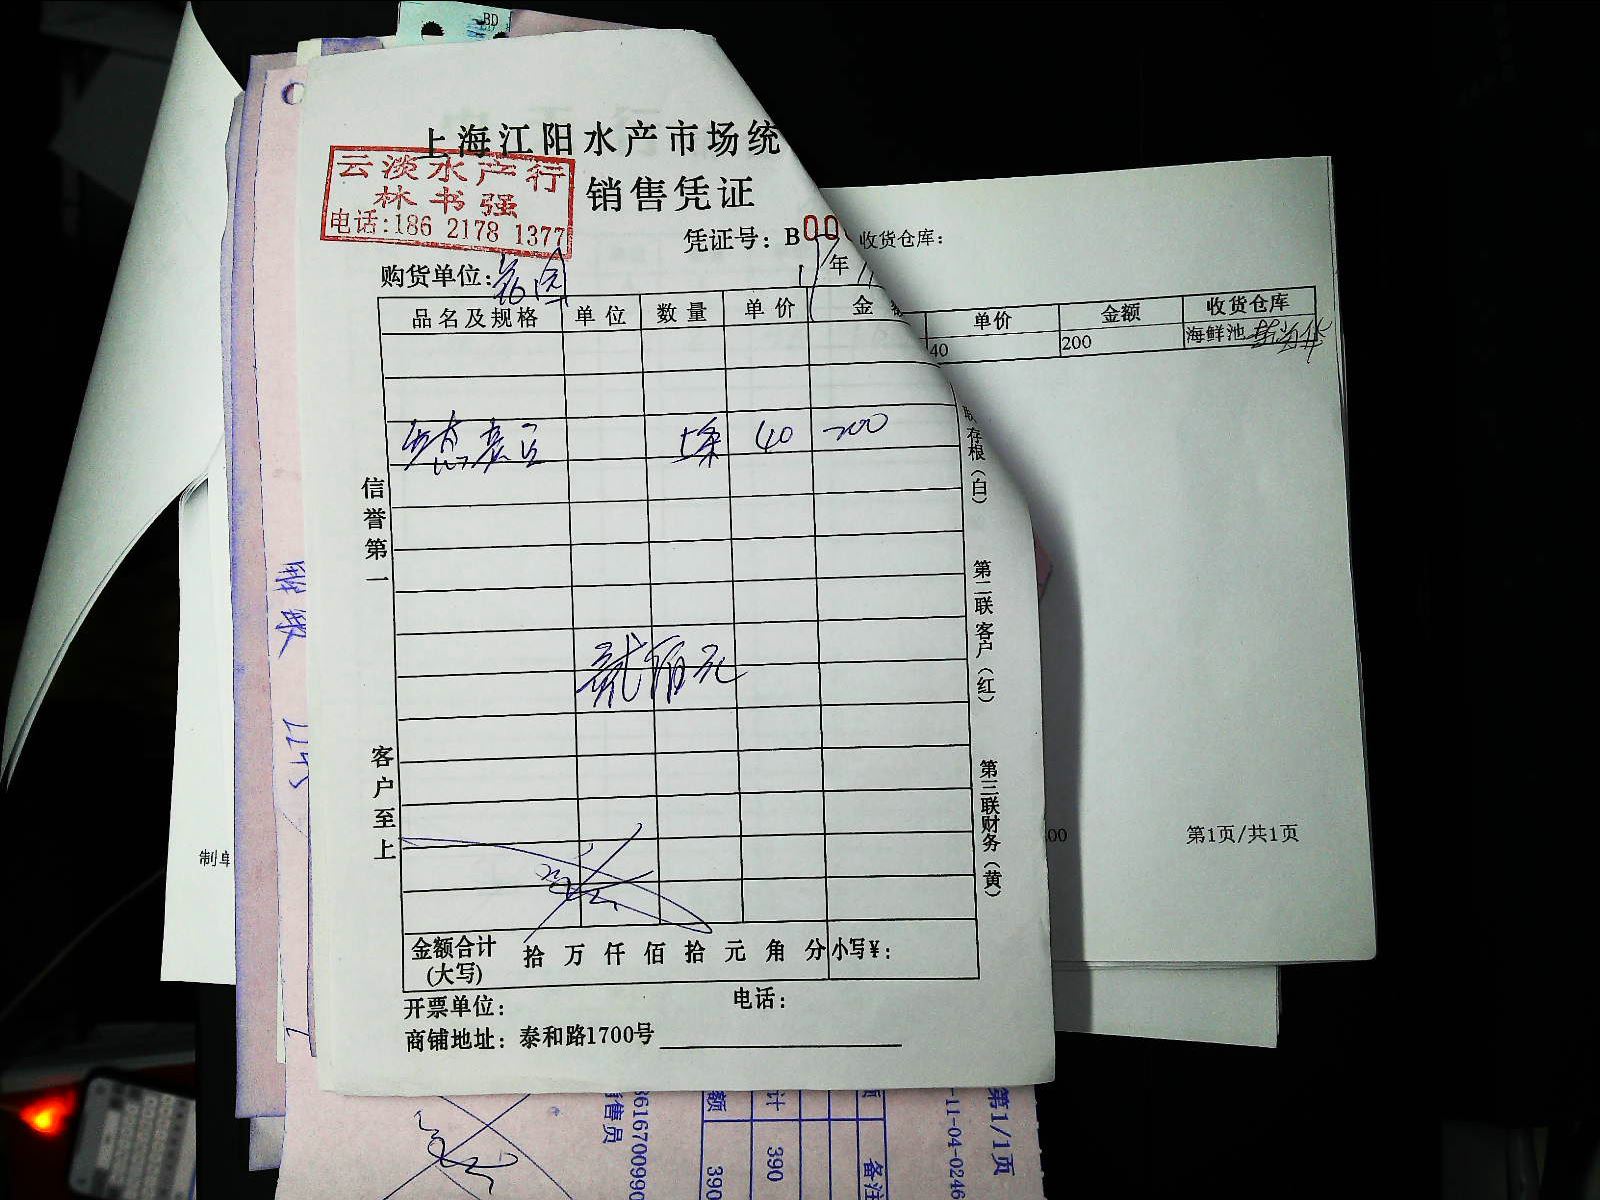 BD
上海江阳水产市场统
云淡水产行
林书强
电话:186 2178 1377
销售凭证
凭证号: B00
收货仓库:
购货单位:
年
品名及规格 单位 数量 单价 金
40 200
单价 金额 收货仓库
40 200 海鲜池
信誉第一
客户至上
存根(白)
第二联客户(红)
第三联财务(黄)
贰佰元
00 第1页/共1页
金额合计(大写) 拾 万 仟 佰 拾 元 角 分 小写¥:
开票单位: 电话:
商铺地址: 泰和路1700号
售员
3616700990
额
390
计
390
备注
-11-04-0246
第1/1页